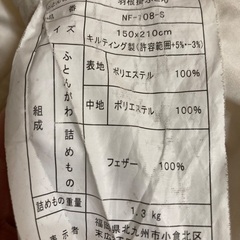 番 NF-108-S
イズ 150×210cm
キルティング製(許容範囲+5%~-3%)
組成
ふとんがわ
表地 ポリエステル 100%
中地 ポリエステル 100%
詰めもの
フェザー 100%
詰めもの重量 1.3kg
表示者
福岡県北九州市小倉北区
末広